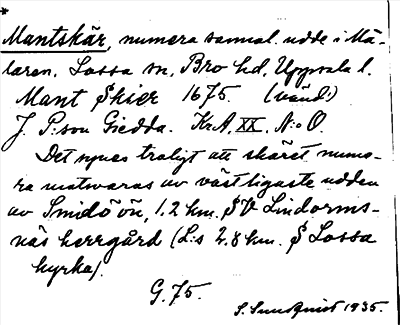 *
Mantskär, numera samml. udde i Mä-
laren. Lossa sn, Bro hd, Uppsala l.
Mant Skier 1675. (vänd!)
J. P:son Giedda. Kr.A, XX, N:o O.
Det synes troligt att skäret nume-
ra motsvaras av västligaste udden
av Smidö ön, 1.2 km. SV Lindorms-
näs herrgård (L:s 2.8 km. S Lossa
kyrka).
G. 75.
S. Sundquist 1935.